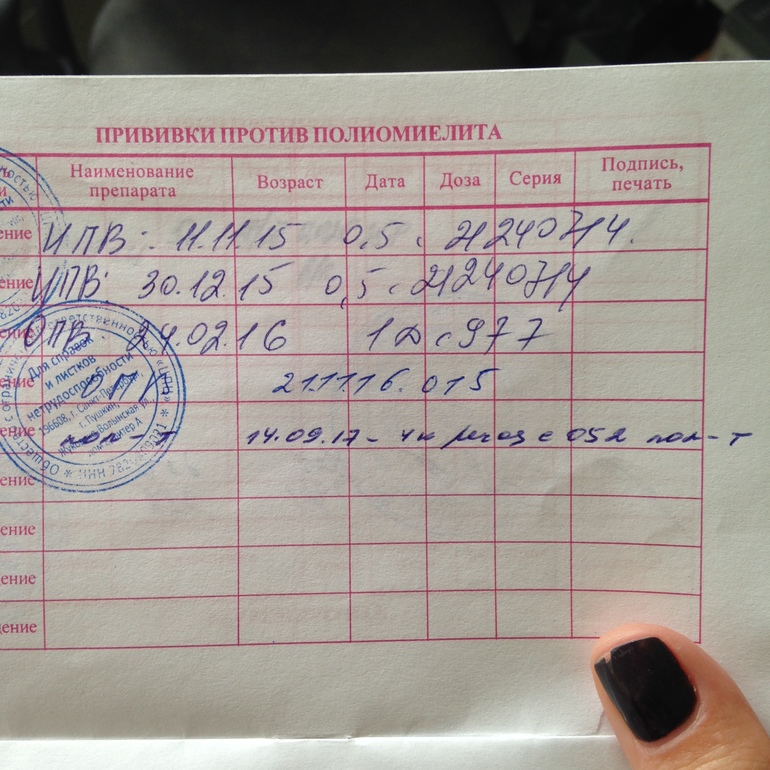 ПРИВИВКИ ПРОТИВ ПОЛИОМИЕЛИТА
Наименование препарата Возраст Дата Доза Серия Подпись, печать
ение ИПВ: 11.11.15 0,5 с 21240714.
ение ИПВ: 30.12.15 0,5 с 21240714
ение ОПВ: 24.02.16 1д с 977
ение 21.11.16. 015
ение пол-т 14.09.17 - 052 пол-т
ение
ение
дение
дение
Для справок
и листков
нетрудоспособности
196608, г. Санкт-Петербург,
г. Пушкин,
литер А